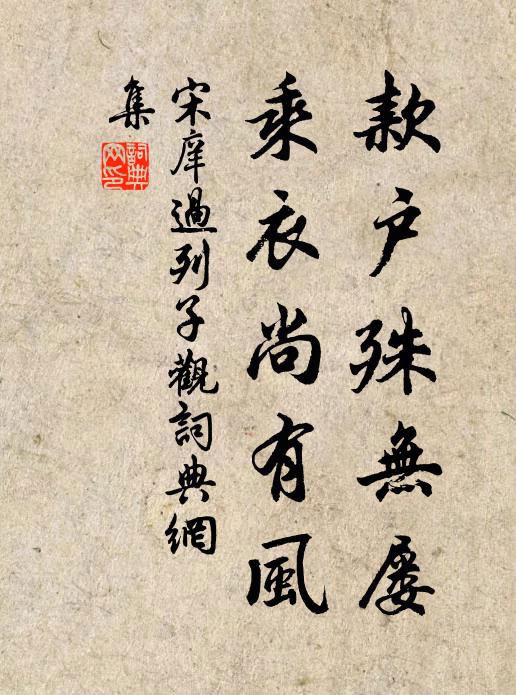 款戶殊無屢
乘衣尚有風
宋庠過列子觀詞典網
集
詞典網印